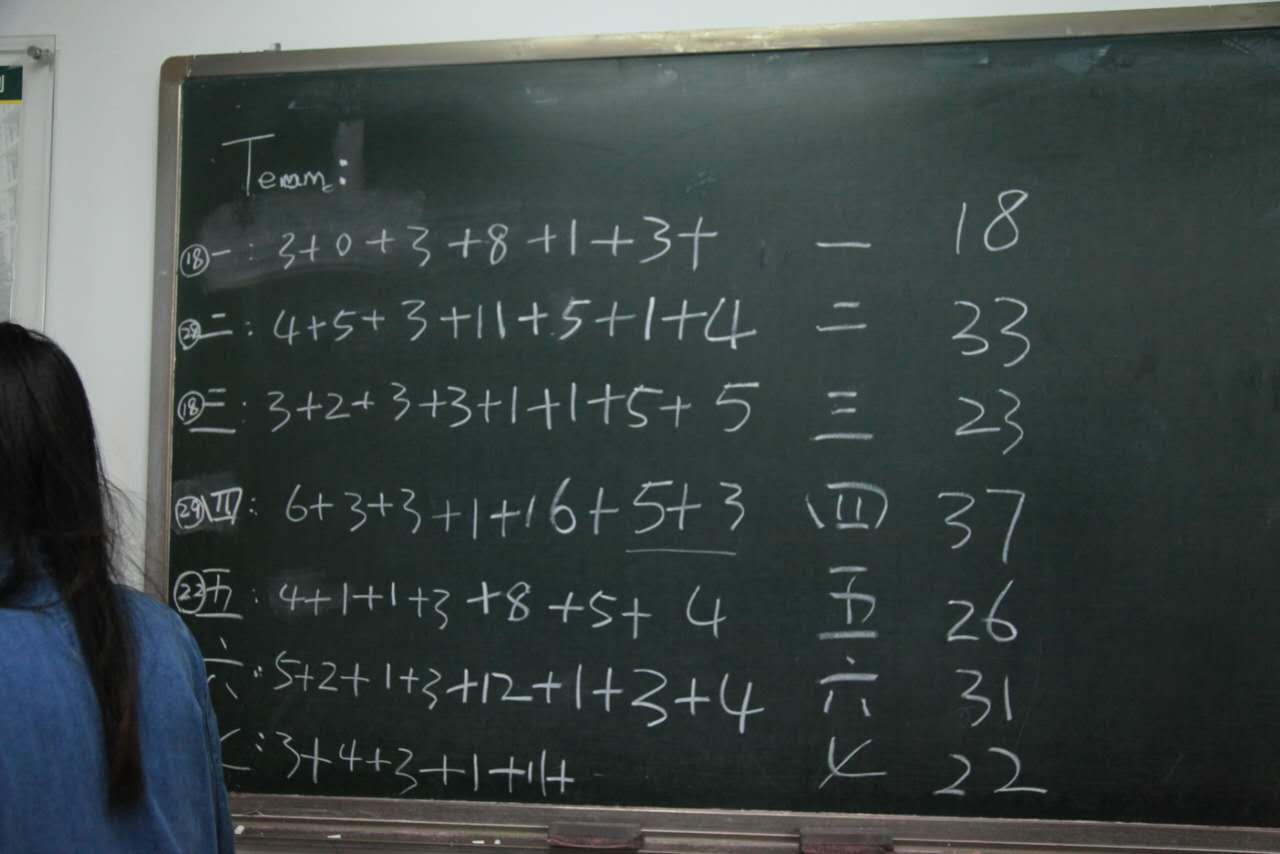 Team:
⑱一: 3+0+3+8+1+3+ 一 18
二: 4+5+3+11+5+1+4 二 33
⑱三: 3+2+3+3+1+1+5+5 三 23
㉙四: 6+3+3+1+16+5+3 四 37
㉒五: 4+1+1+3+8+5+4 五 26
六: 5+2+1+3+12+1+3+4 六 31
七: 3+4+3+1+11+ 七 22